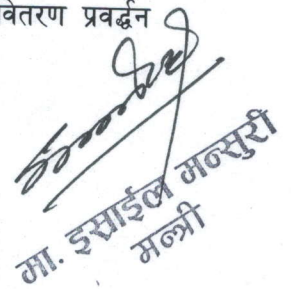 वितरण प्रवर्द्धन
मा. इस्राईल मन्सुरी
मन्त्री